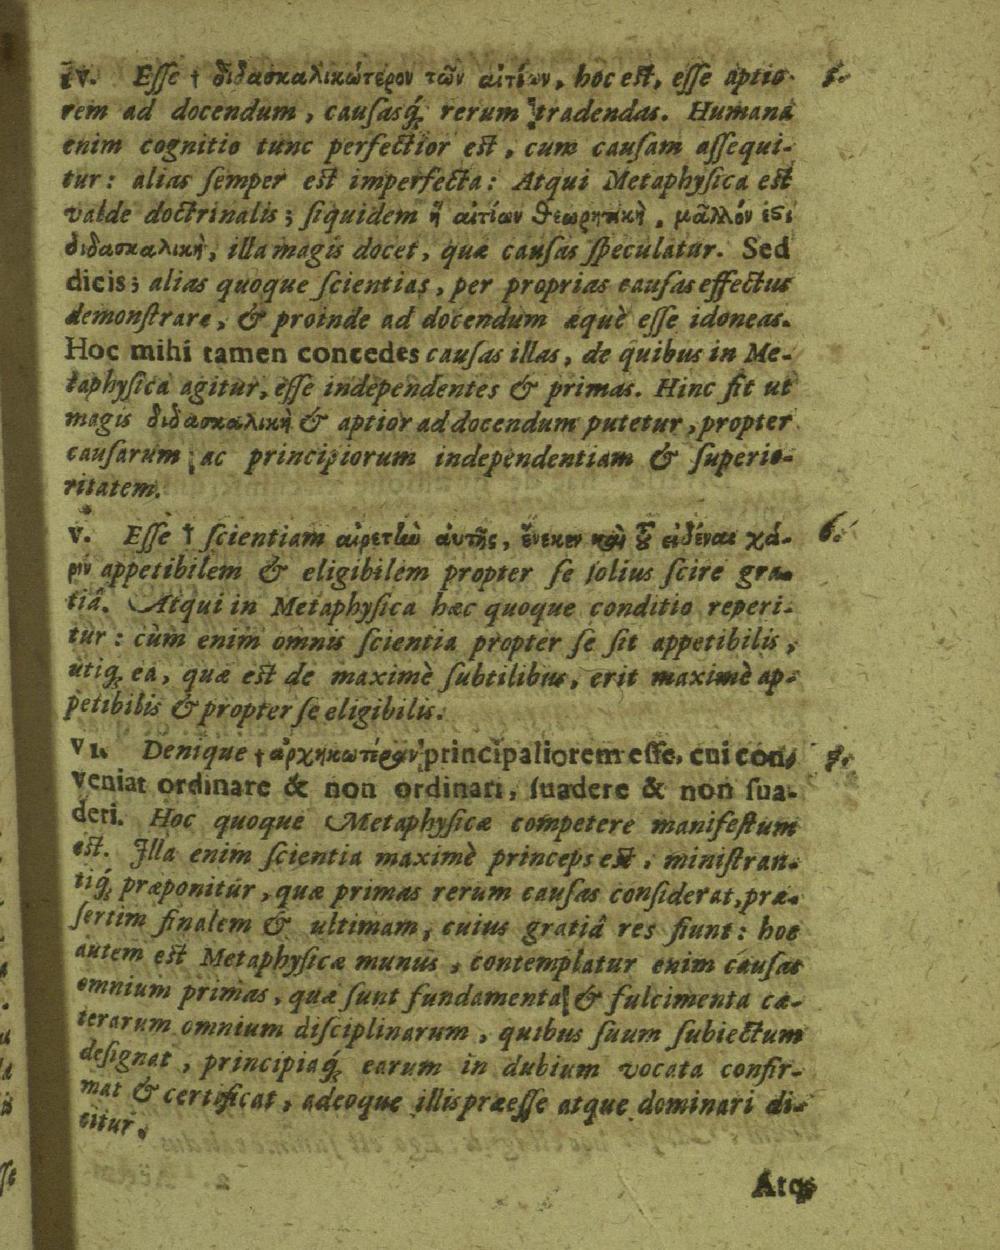 IV. Eſſe † διδασκαλικώτερον τῶν αἰτίων, hoc eſt, eſſe aptio- 5.
rem ad docendum, cauſasq́; rerum tradendas. Humana
enim cognitio tunc perfectior eſt, cum cauſam aſſequi-
tur: alias ſemper eſt imperfecta: Atqui Metaphyſica eſt
valde doctrinalis; ſiquidem ἡ αἰτίων θεωρητικὴ, μᾶλλόν ἐστι
διδασκαλικὴ, illa magis docet, quæ cauſas ſpeculatur. Sed
dicis; alias quoque ſcientias, per proprias cauſas effectus
demonſtrare, & proinde ad docendum æquè eſſe idoneas.
Hoc mihi tamen concedes cauſas illas, de quibus in Me-
taphyſica agitur, eſſe independentes & primas. Hinc fit ut
magis διδασκαλικὴ & aptior ad docendum putetur, propter
cauſarum ac principiorum independentiam & ſuperio-
ritatem.
V. Eſſe † ſcientiam αἱρετὼ ἀυτῆς, ἕνεκεν καὶ τοῦ εἰδέναι χά- 6.
ριν appetibilem & eligibilem propter ſe ſolius ſcire gra-
tiâ. Atqui in Metaphyſica hæc quoque conditio reperi-
tur: cùm enim omnis ſcientia propter ſe ſit appetibilis,
utiq; ea, quæ eſt de maximè ſubtilibus, erit maximè ap-
petibilis & propter ſe eligibilis.
VI. Denique † ἀρχηκωτέραν principaliorem eſſe, cui con-
veniat ordinare & non ordinari, ſuadere & non ſua-
deri. Hoc quoque Metaphyſicæ competere manifeſtum
eſt. Illa enim ſcientia maximè princeps eſt, miniſtran-
tiq́; præponitur, quæ primas rerum cauſas conſiderat, præ-
ſertim finalem & ultimam, cuius gratiâ res fiunt: hoc
autem eſt Metaphyſicæ munus, contemplatur enim cauſas
omnium primas, quæ ſunt fundamenta & fulcimenta cæ-
terarum omnium diſciplinarum, quibus ſuum ſubiectum
deſignat, principiaq́; earum in dubium vocata confir-
mat & certificat, adeoque illis præeſſe atque dominari di-
citur.
Atq;